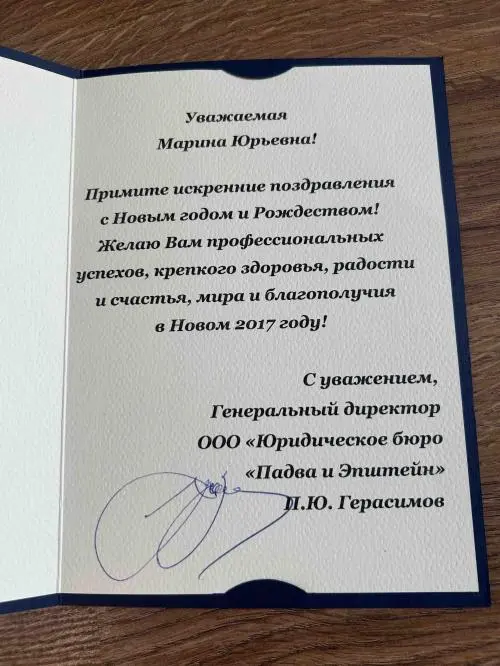 Уважаемая
Марина Юрьевна!
Примите искренние поздравления
с Новым годом и Рождеством!
Желаю Вам профессиональных
успехов, крепкого здоровья, радости
и счастья, мира и благополучия
в Новом 2017 году!
С уважением,
Генеральный директор
ООО «Юридическое бюро
«Падва и Эпштейн»
П.Ю. Герасимов